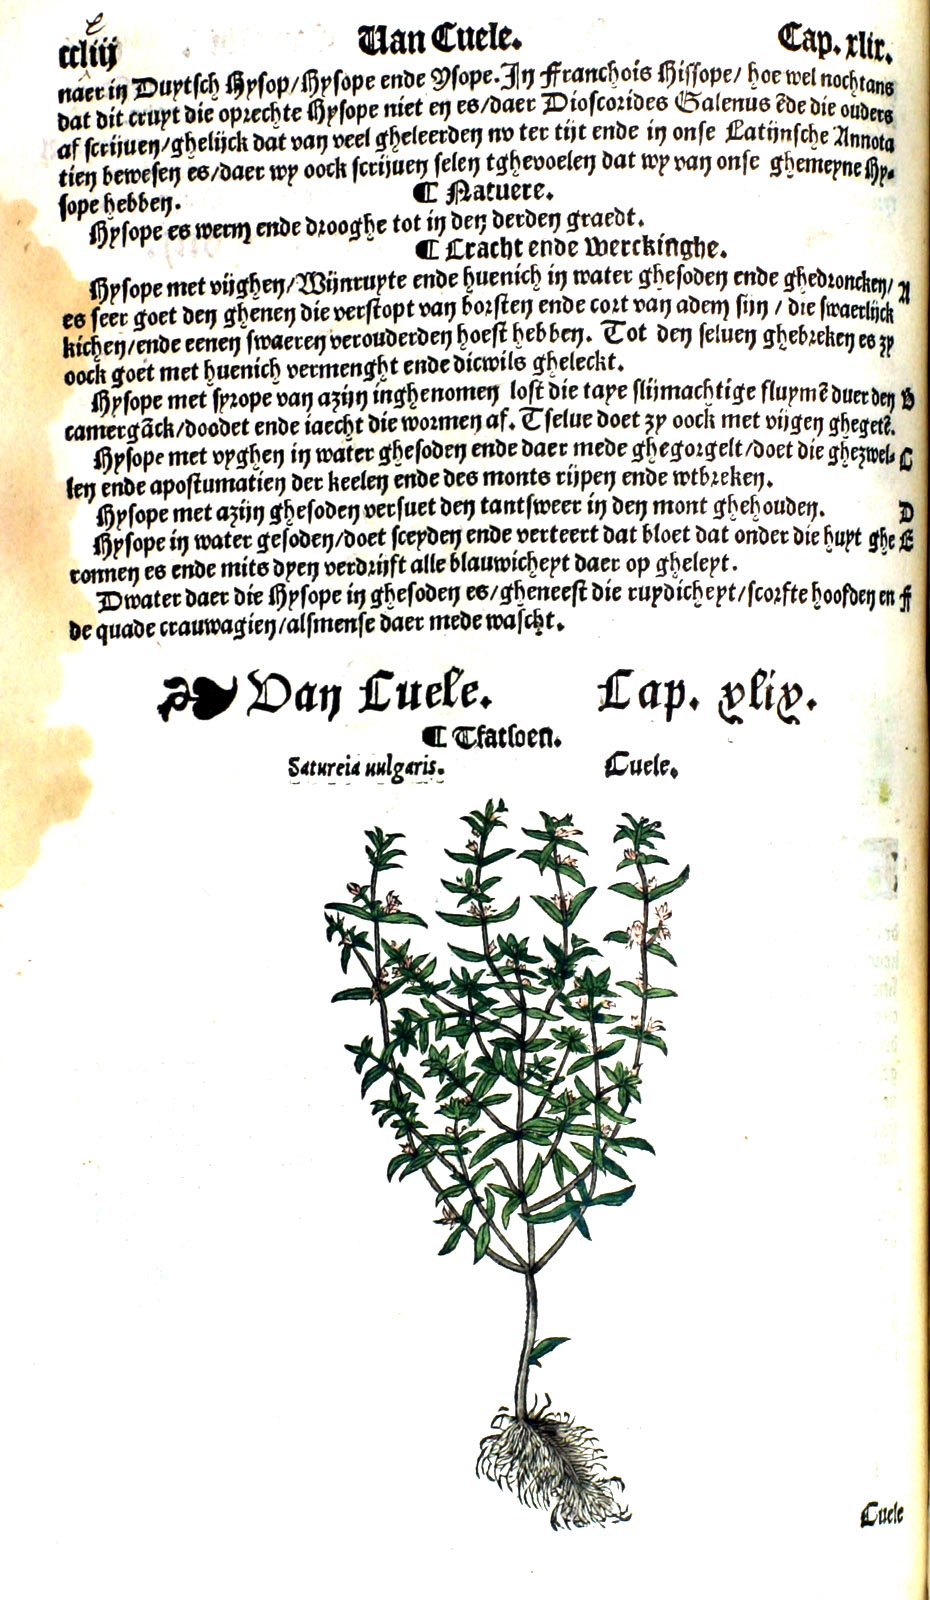 ccliij Van Cuele. Cap. xlix.
naer in Duytsch Hysop/Hysope ende Ysope. In Franchois Hissope/ hoe wel nochtans
dat dit cruyt die oprechte Hysope niet en es/daer Dioscorides Galenus ēde die ouders
af scrijuen/ghelijck dat van veel gheleerden nv ter tijt ende in onse Latijnsche Annota
tien bewesen es/daer wy oock scrijuen selen tghevoelen dat wy van onse ghemeyne Hy-
sope hebben.
¶ Natuere.
Hysope es werm ende drooghe tot in den derden graedt.
¶ Cracht ende Werckinghe.
Hysope met vijghen/Wijnruyte ende huenich in water ghesoden ende ghedroncken/ A
es seer goet den ghenen die verstopt van borsten ende cort van adem sijn / die swaerlijck
kichen/ende eenen swaeren verouderden hoest hebben. Tot den seluen ghebreken es zy
oock goet met huenich vermenght ende dicwils gheleckt.
Hysope met syrope van azijn inghenomen lost die taye slijmachtige fluymē duer den B
camergāck/doodet ende iaecht die wormen af. Tselue doet zy oock met vijgen ghegetē.
Hysope met vyghen in water ghesoden ende daer mede ghegorgelt/doet die ghezwel- C
len ende apostumatien der keelen ende des monts rijpen ende wtbreken.
Hysope met azijn ghesoden versuet den tantsweer in den mont ghehouden. D
Hysope in water gesoden/doet sceyden ende verteert dat bloet dat onder die huyt ghe E
ronnen es ende mits dyen verdrijft alle blauwicheyt daer op gheleyt.
Dwater daer die Hysope in ghesoden es/gheneest die ruydicheyt/scorfte hoofden en F
de quade crauwagien/alsmense daer mede wascht.
Van Cuele. Cap. xlix.
¶ Tfatsoen.
Satureia uulgaris. Cuele.
Cuele